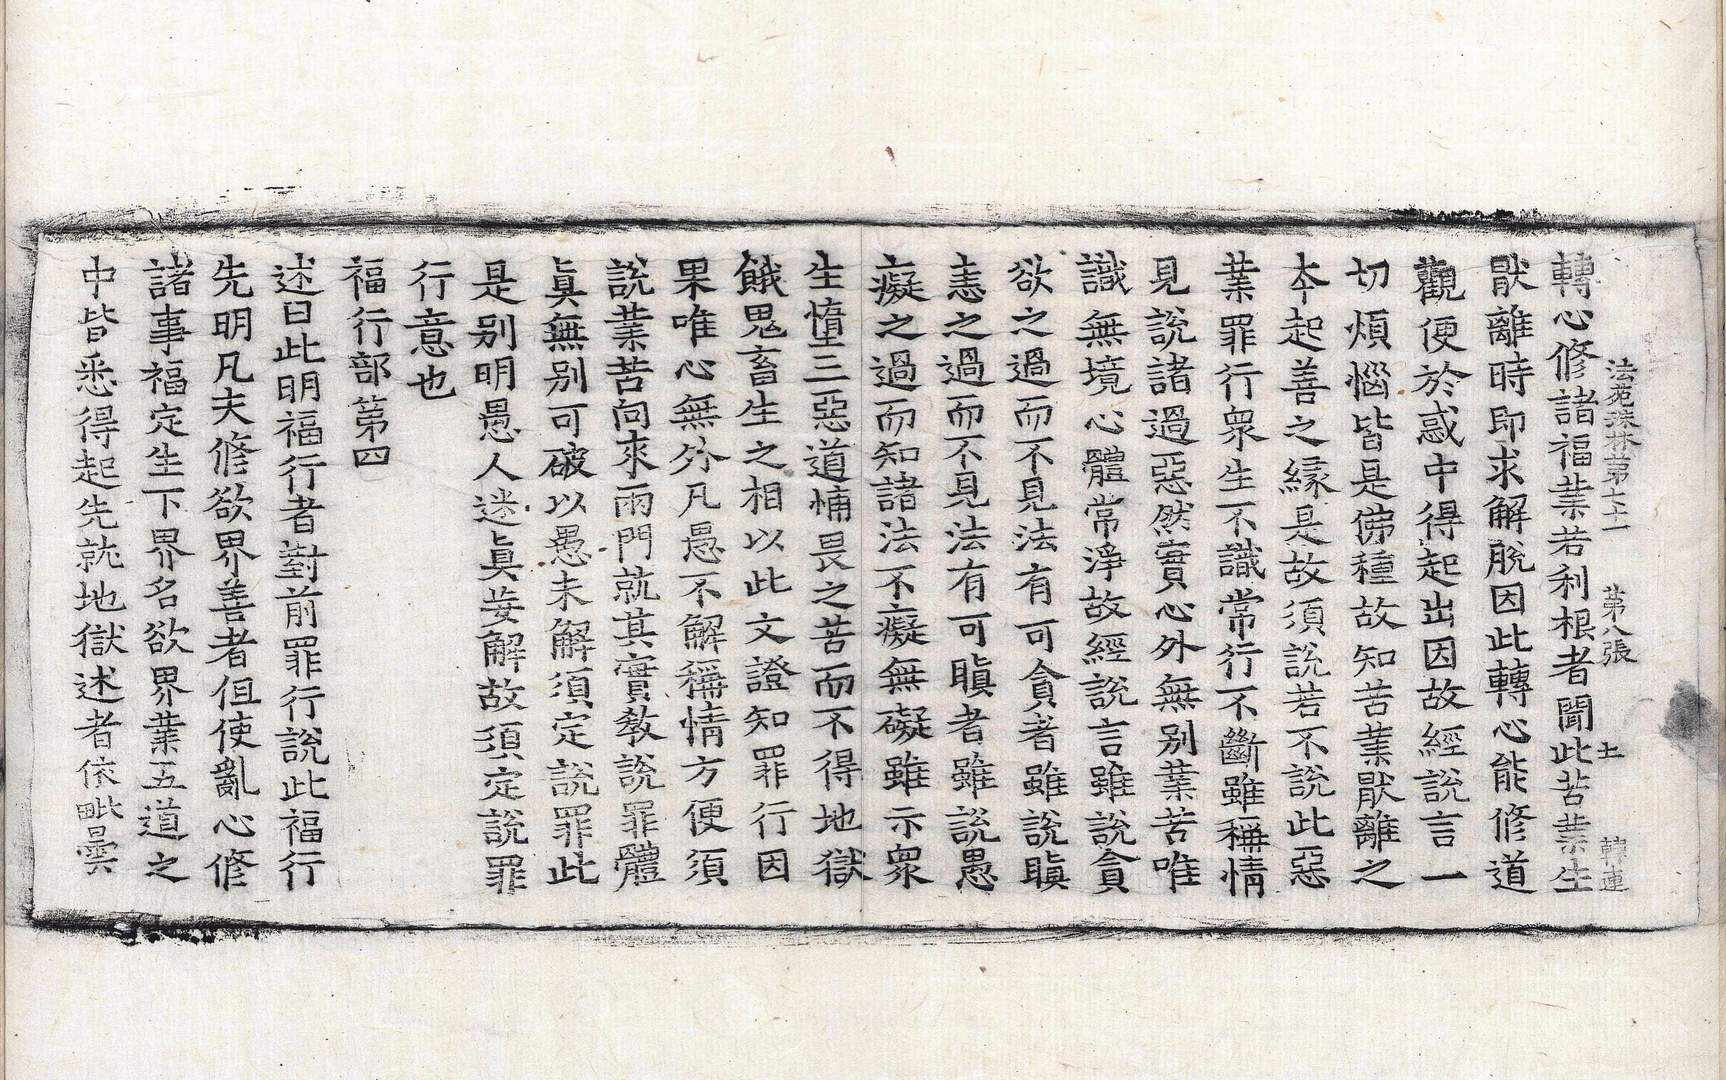 法苑珠林第七十一 第八張 士 轉連
轉心修諸福業若利根者聞此苦業生
厭離時即求解脫因此轉心能修道
觀便於惑中得起出因故經說言一
切煩惱皆是佛種故知苦業厭離之
本起善之緣是故須說若不說此惡
業罪行衆生不識常行不斷雖稱情
見說諸過惡然實心外無別業苦唯
識無境心體常淨故經說言雖說貪
欲之過而不見法有可貪者雖說瞋
恚之過而不見法有可瞋者雖說愚
癡之過而知諸法不癡無礙雖示衆
生墮三惡道怖畏之苦而不得地獄
餓鬼畜生之相以此文證知罪行因
果唯心無外凡愚不解稱情方便須
說業苦向來兩門就其實教說罪體
眞無別可破以愚未解須定說罪此
是別明愚人迷眞妄解故須定說罪
行意也
福行部第四
述曰此明福行者對前罪行說此福行
先明凡夫修欲界善者但使亂心修
諸事福定生下界名欲界業五道之
中皆悉得起先就地獄述者依毗曇